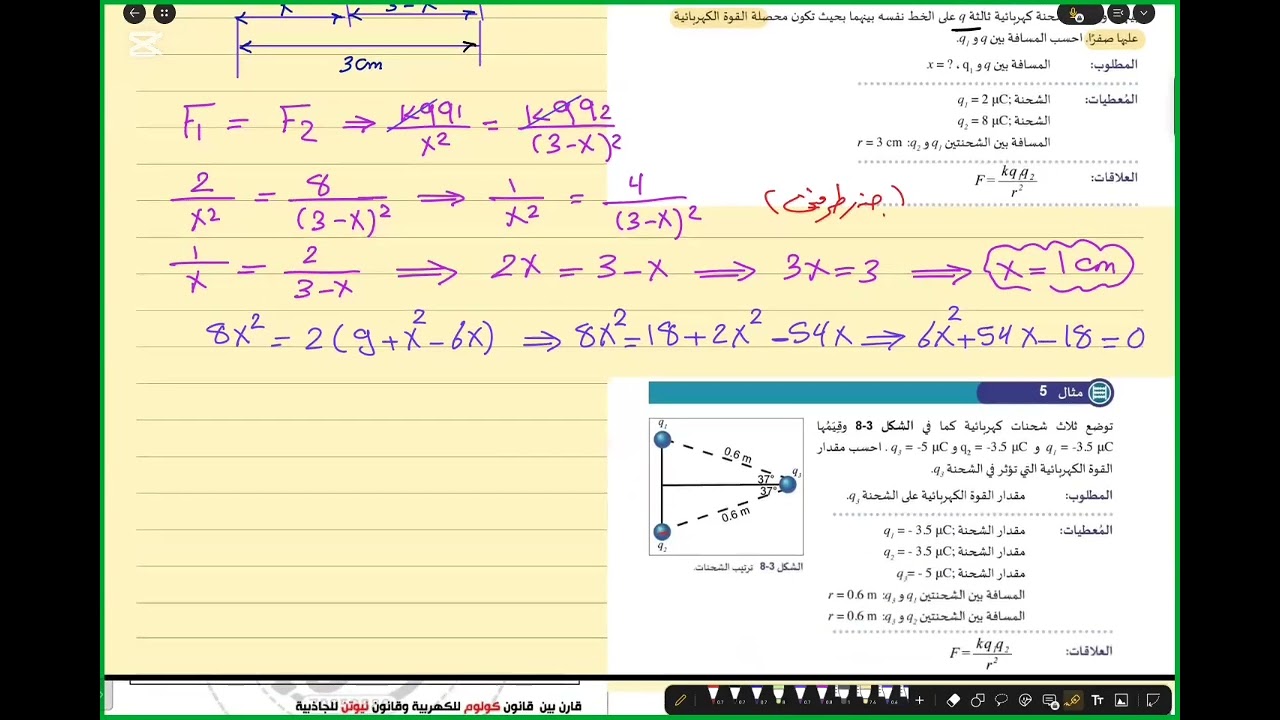 3 cm
F₁ = F₂ ⇒ kqq₁/x² = kqq₂/(3-x)²
2/x² = 8/(3-x)² ⇒ 1/x² = 4/(3-x)²
1/x = 2/(3-x) ⇒ 2x = 3-x ⇒ 3x = 3 ⇒ x = 1 cm
8x² = 2(9+x²-6x) ⇒ 8x² = 18+2x²-54x ⇒ 6x²+54x-18=0
شحنة كهربائية ثالثة q على الخط نفسه بينهما بحيث تكون محصلة القوة الكهربائية
عليها صفرًا. احسب المسافة بين q و q₁.
المطلوب: المسافة بين q و q₁، x = ?
المُعطيات: الشحنة q₁ = 2 µC;
الشحنة q₂ = 8 µC;
المسافة بين الشحنتين q₁ و q₂: r = 3 cm
العلاقات: F = kq₁q₂/r²
مثال 5
توضع ثلاث شحنات كهربائية كما في الشكل 3-8 وقِيَمُها
q₁ = -3.5 µC و q₂ = -3.5 µC و q₃ = -5 µC. احسب مقدار
القوة الكهربائية التي تؤثر في الشحنة q₃.
المطلوب: مقدار القوة الكهربائية على الشحنة q₃.
المُعطيات: مقدار الشحنة q₁ = - 3.5 µC;
مقدار الشحنة q₂ = - 3.5 µC;
مقدار الشحنة q₃ = - 5 µC;
المسافة بين الشحنتين q₁ و q₃: r = 0.6 m
المسافة بين الشحنتين q₂ و q₃: r = 0.6 m
العلاقات: F = kq₁q₂/r²
q₁
0.6 m
q₃
37°
37°
0.6 m
q₂
الشكل 3-8 ترتيب الشحنات.
قارن بين قانون كولوم للكهربية وقانون نيوتن للجاذبية